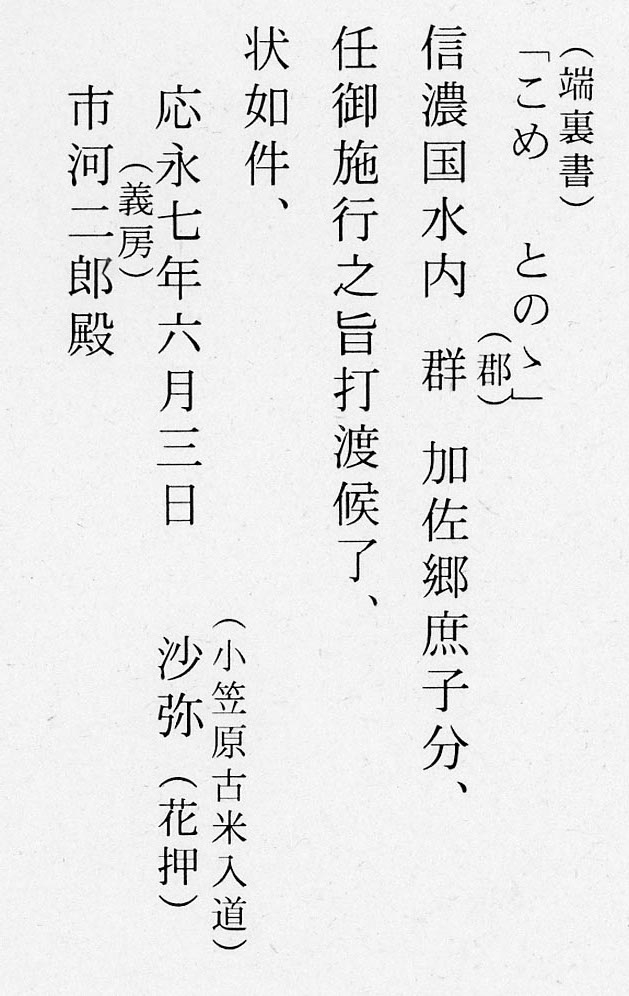 （端裏書）
「こめ　とのゝ」
（郡）
信濃国水内　群　加佐郷庶子分、
任御施行之旨打渡候了、
状如件、
（小笠原古米入道）
応永七年六月三日　沙弥（花押）
（義房）
市河二郎殿